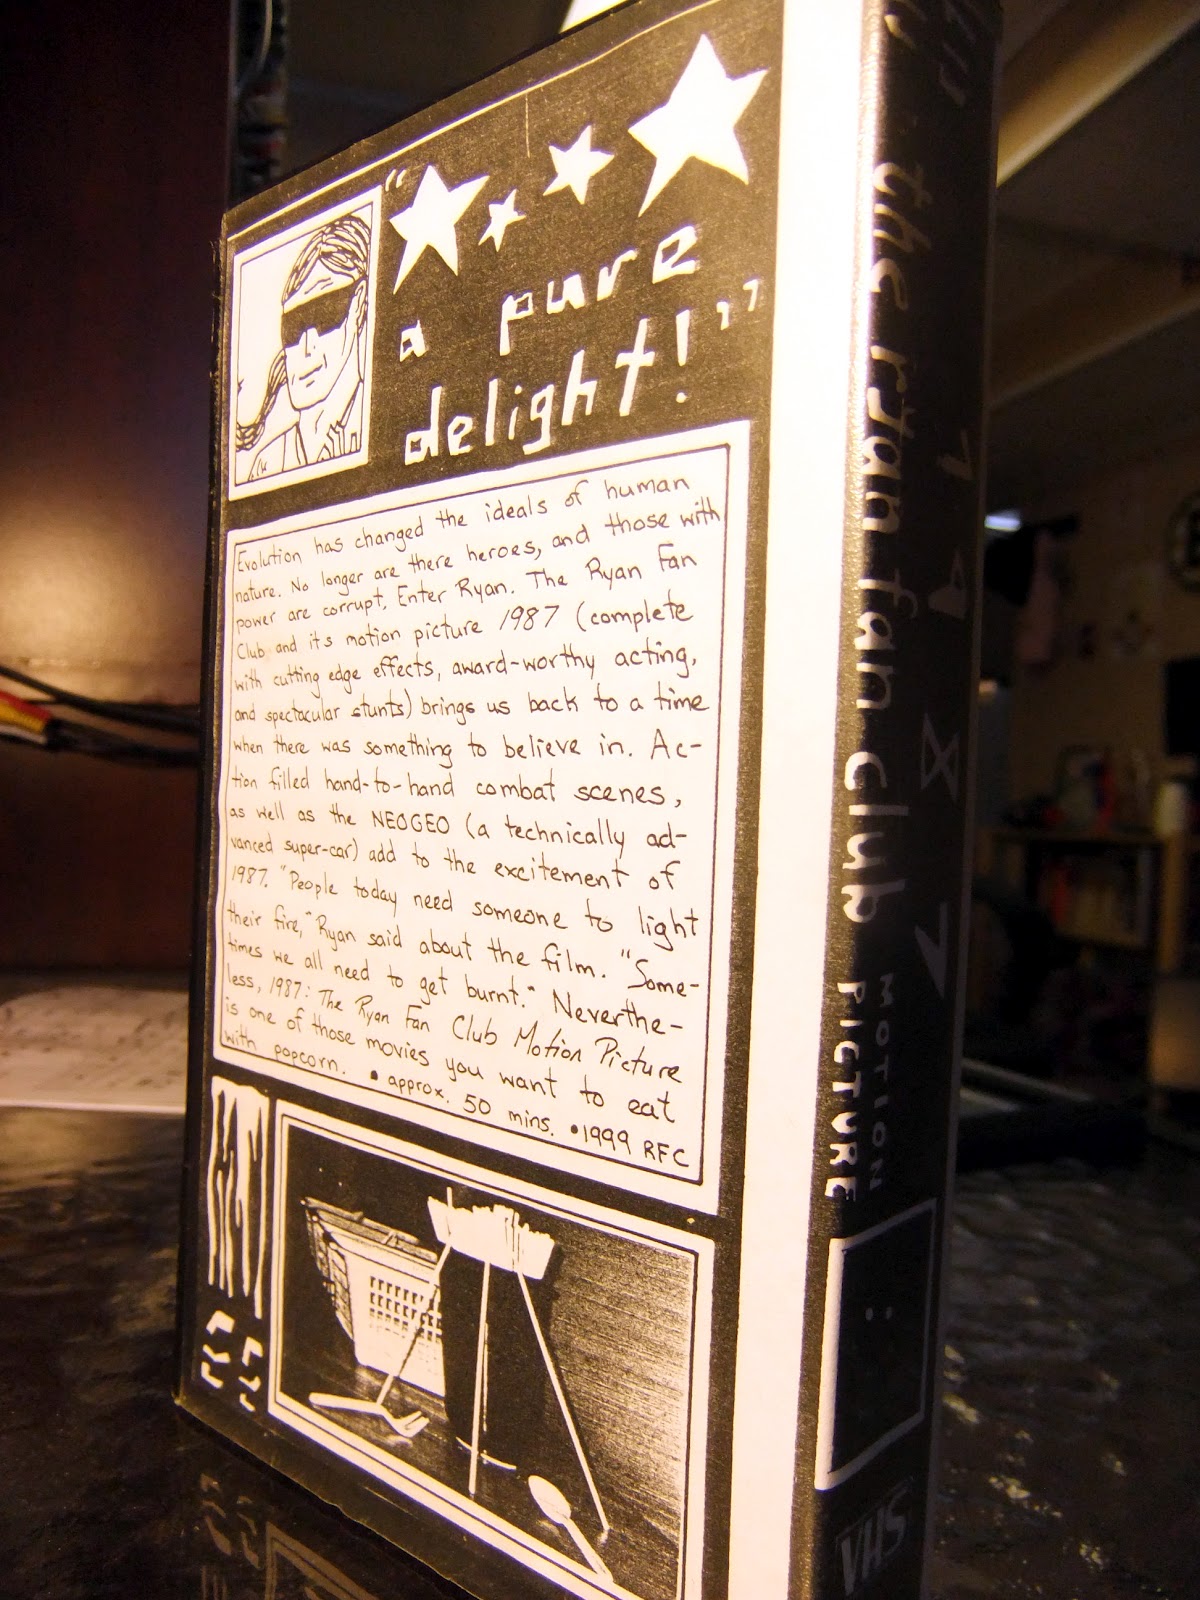 “a pure
delight!”
Evolution has changed the ideals of human
nature. No longer are there heroes, and those with
power are corrupt. Enter Ryan. The Ryan Fan
Club and its motion picture 1987 (complete
with cutting edge effects, award-worthy acting,
and spectacular stunts) brings us back to a time
when there was something to believe in. Ac-
tion filled hand-to-hand combat scenes,
as well as the NEOGEO (a technically ad-
vanced super-car) add to the excitement of
1987. "People today need someone to light
their fire," Ryan said about the film. "Some-
times we all need to get burnt." Neverthe-
less, 1987: The Ryan Fan Club Motion Picture
is one of those movies you want to eat
with popcorn. • approx. 50 mins. • 1999 RFC
the ryan fan club
MOTION
PICTURE
VHS